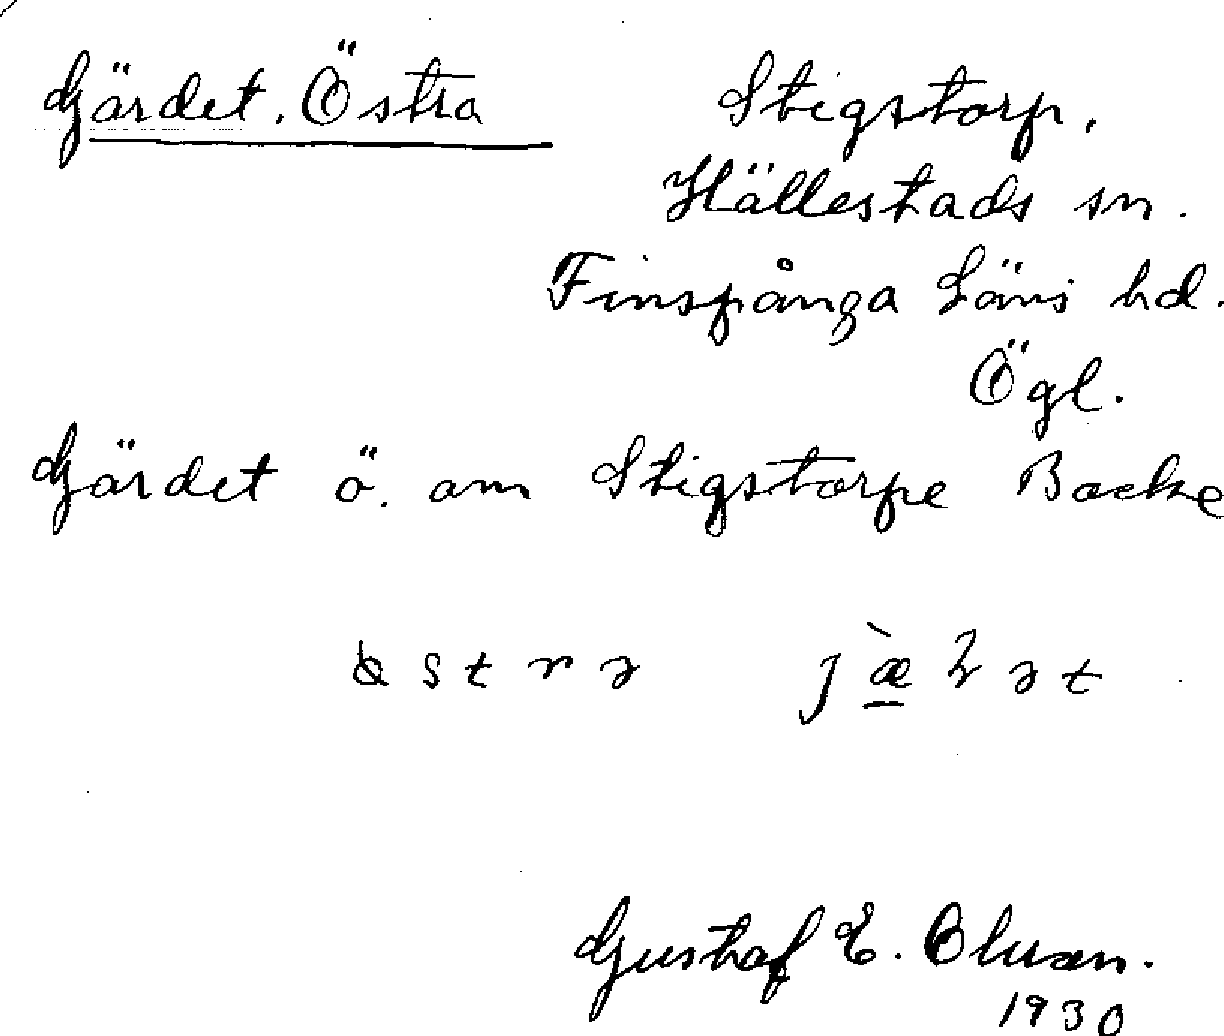 Gärdet, Östra
Stigstorp,
Hällestads sn.
Finspånga Läns hd.
Ögl.
Gärdet ö. om Stigstorpe Backe
Gustaf E.
1930